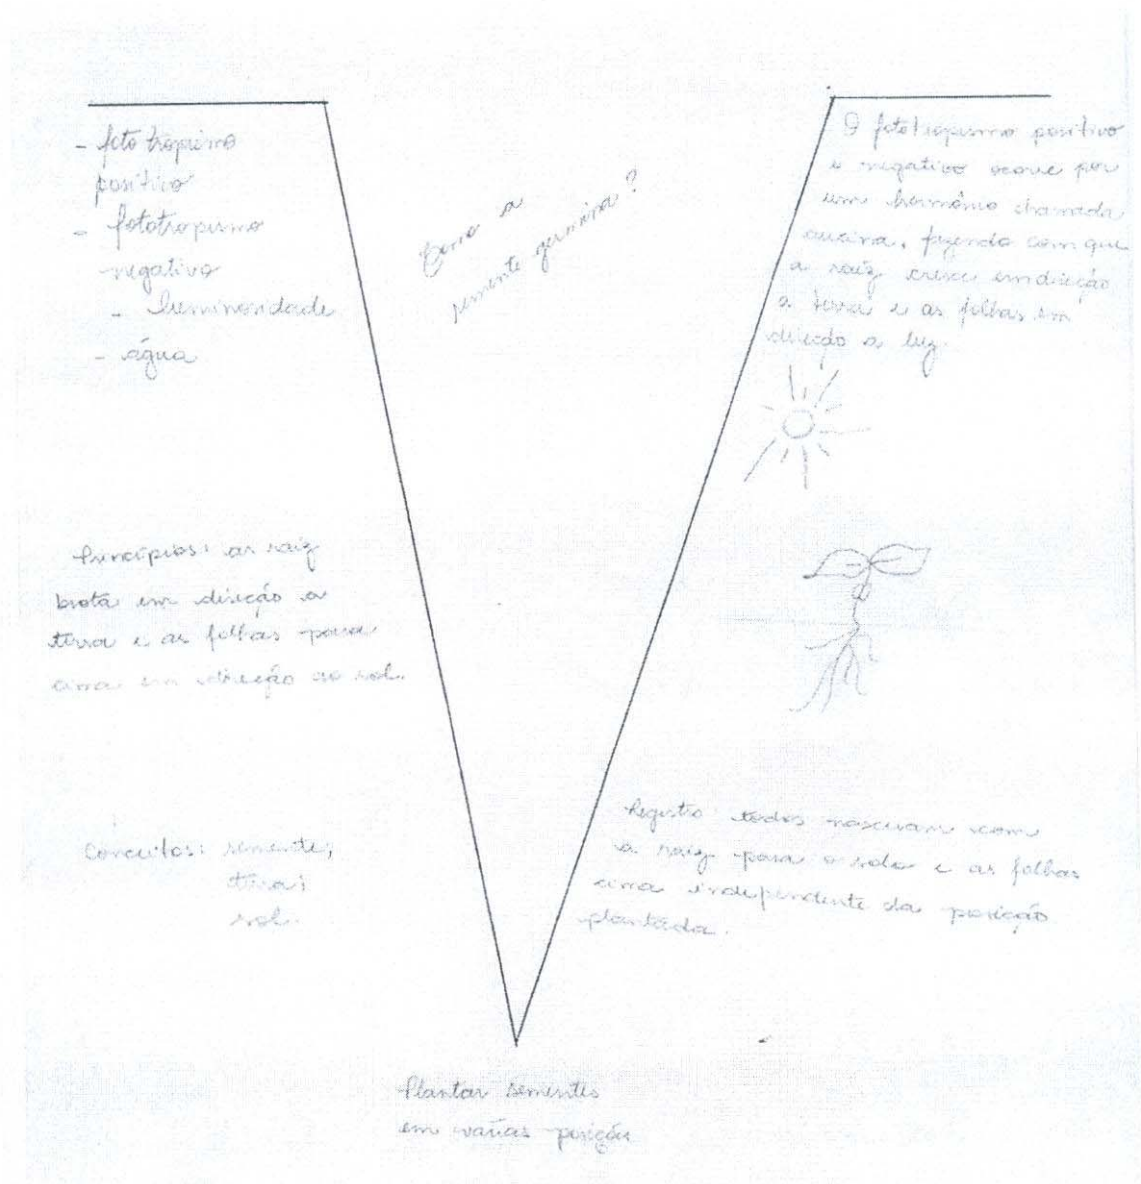 - foto tropismo
positivo
- fototropismo
negativo
- luminosidade
- água
Como a
semente germina?
O fototropismo positivo
e negativo ocorre por
um hormônio chamada
auxina, fazendo com que
a raiz cresce em direção
a terra e as folhas em
direção a luz.
Princípios: as raiz
brota em direção a
terra e as folhas para
cima em direção ao sol.
Conceitos: semente;
terra;
sol.
Registro todos nasceram com
a raiz para o solo e as folhas
cima independente da posição
plantada.
Plantar sementes
em várias posições